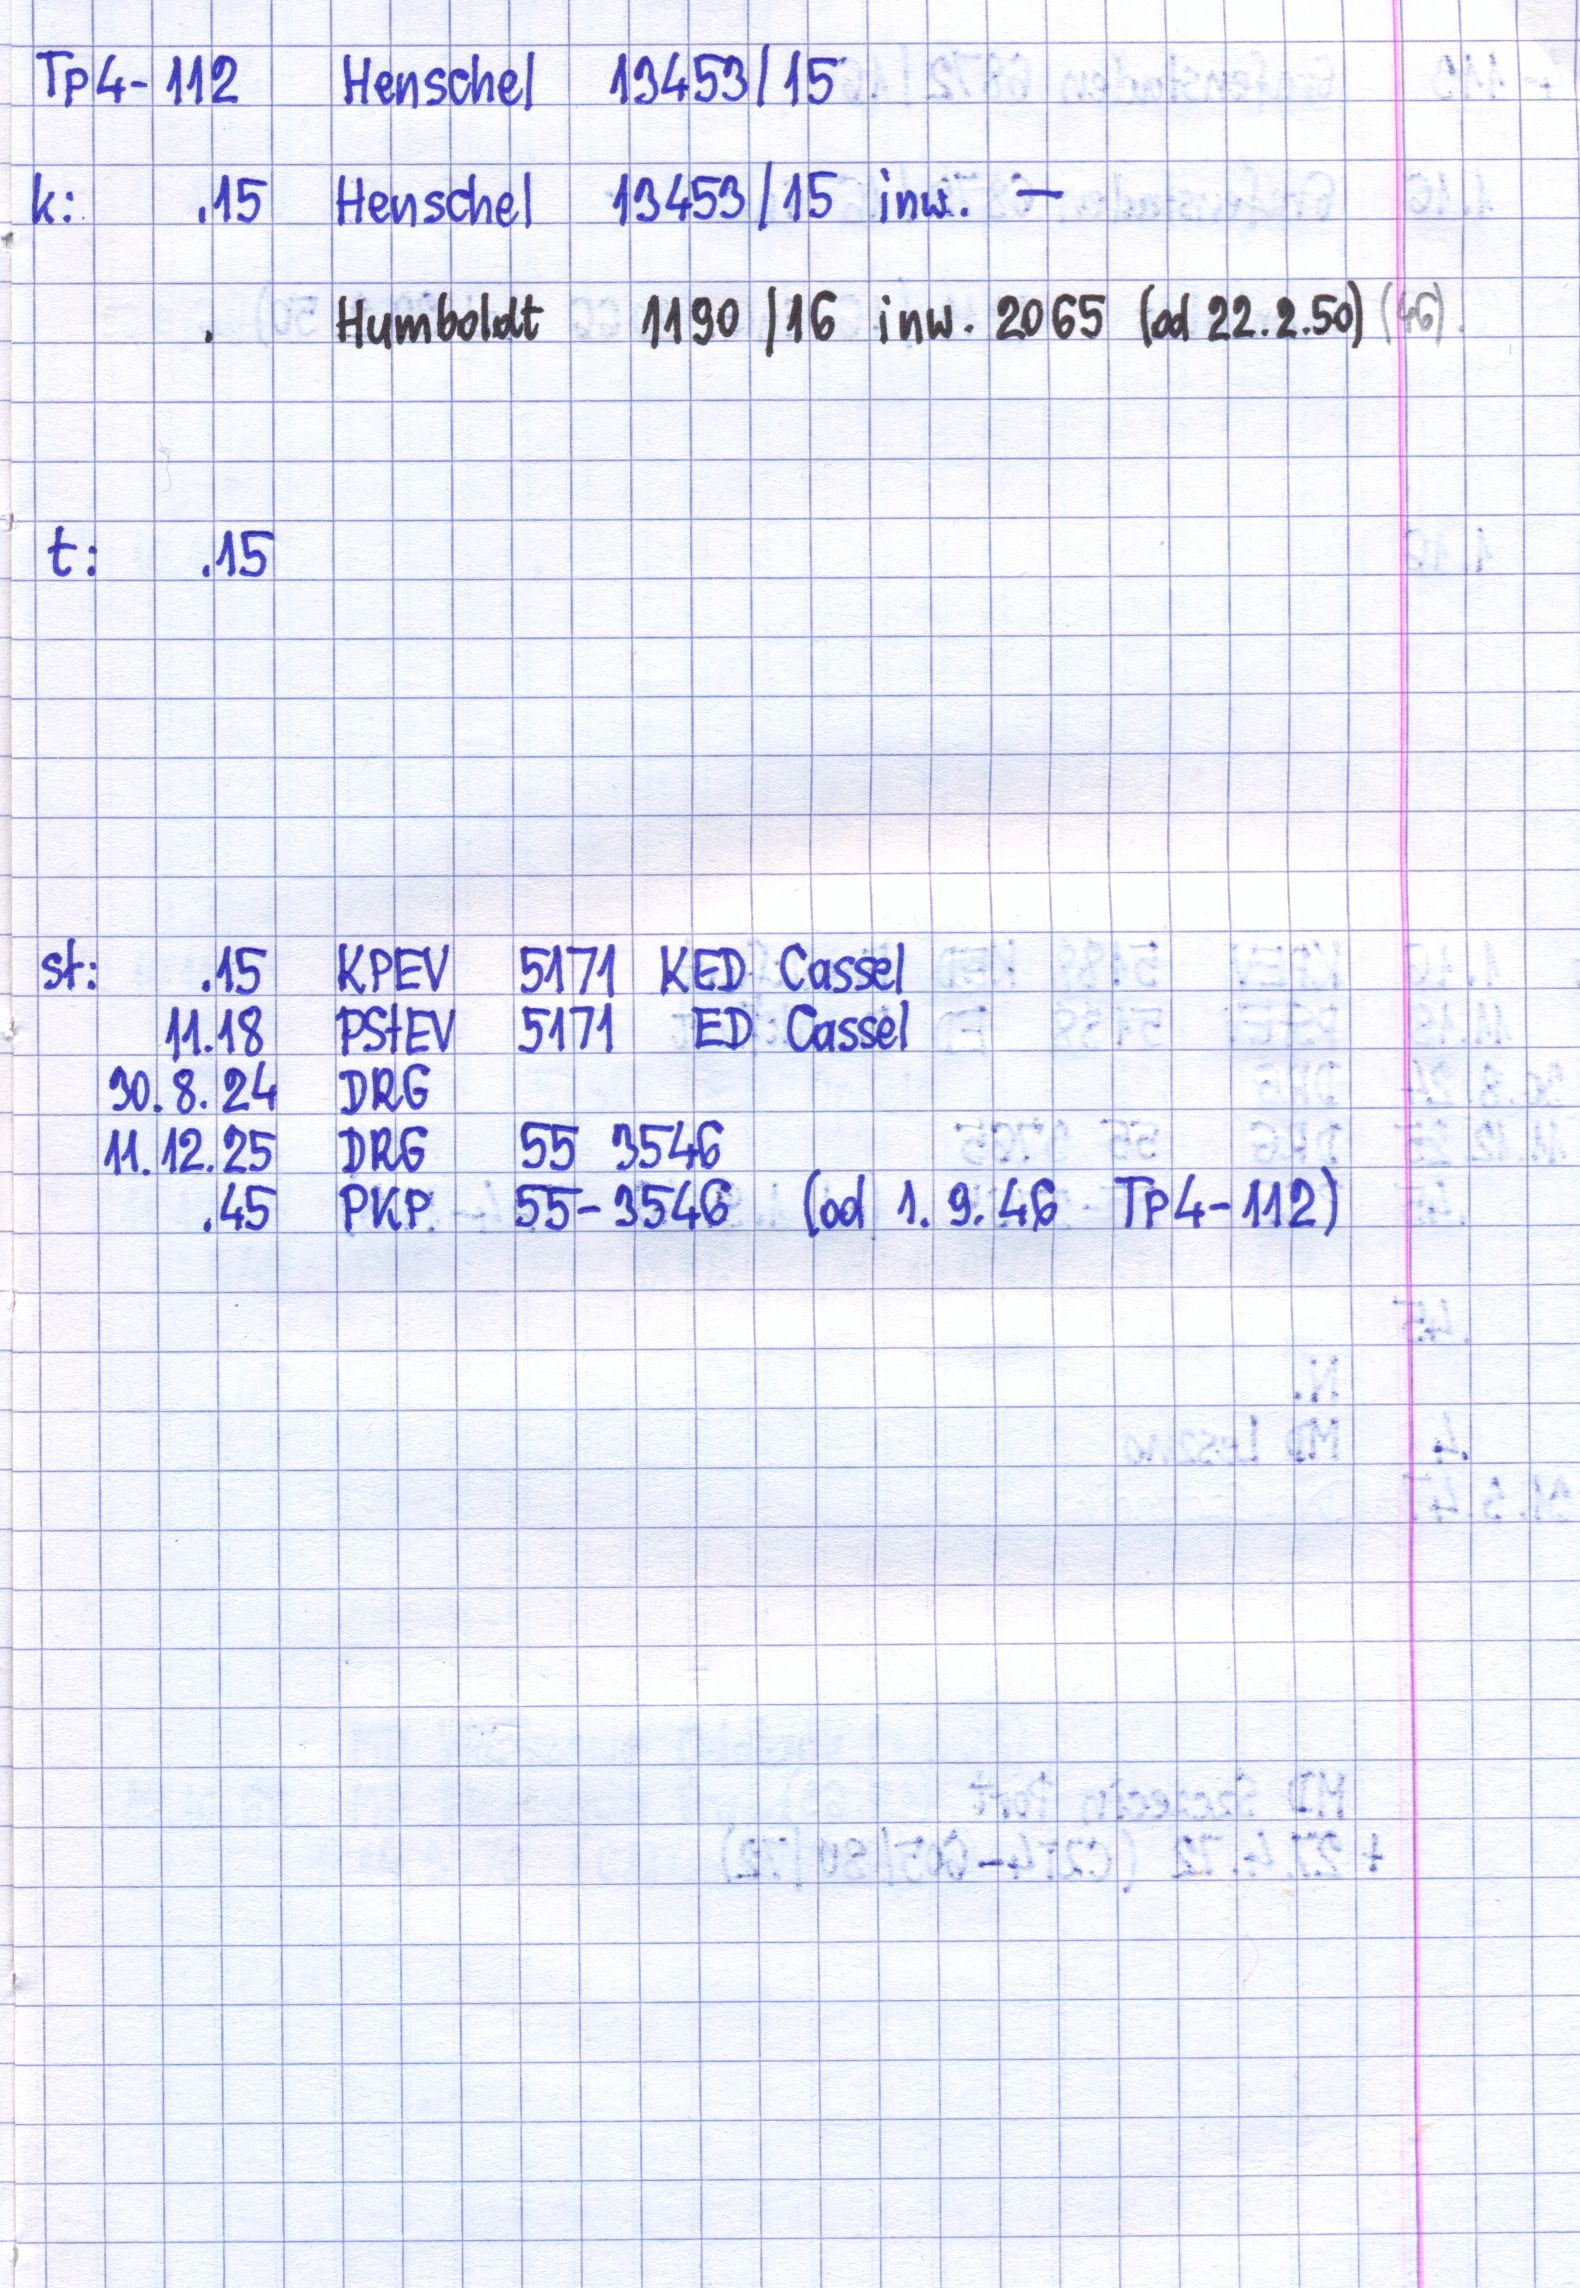 Tp4-112 Henschel 13453/15
k: .15 Henschel 13453/15 inw. —
. Humboldt 1190/16 inw. 2065 (od 22.2.50) (46).
t: .15
st: .15 KPEV 5171 KED Cassel
11.18 PStEV 5171 ED Cassel
30.8.24 DRG
11.12.25 DRG 55 3546
.45 PKP 55-3546 (od 1.9.46 Tp4-112)